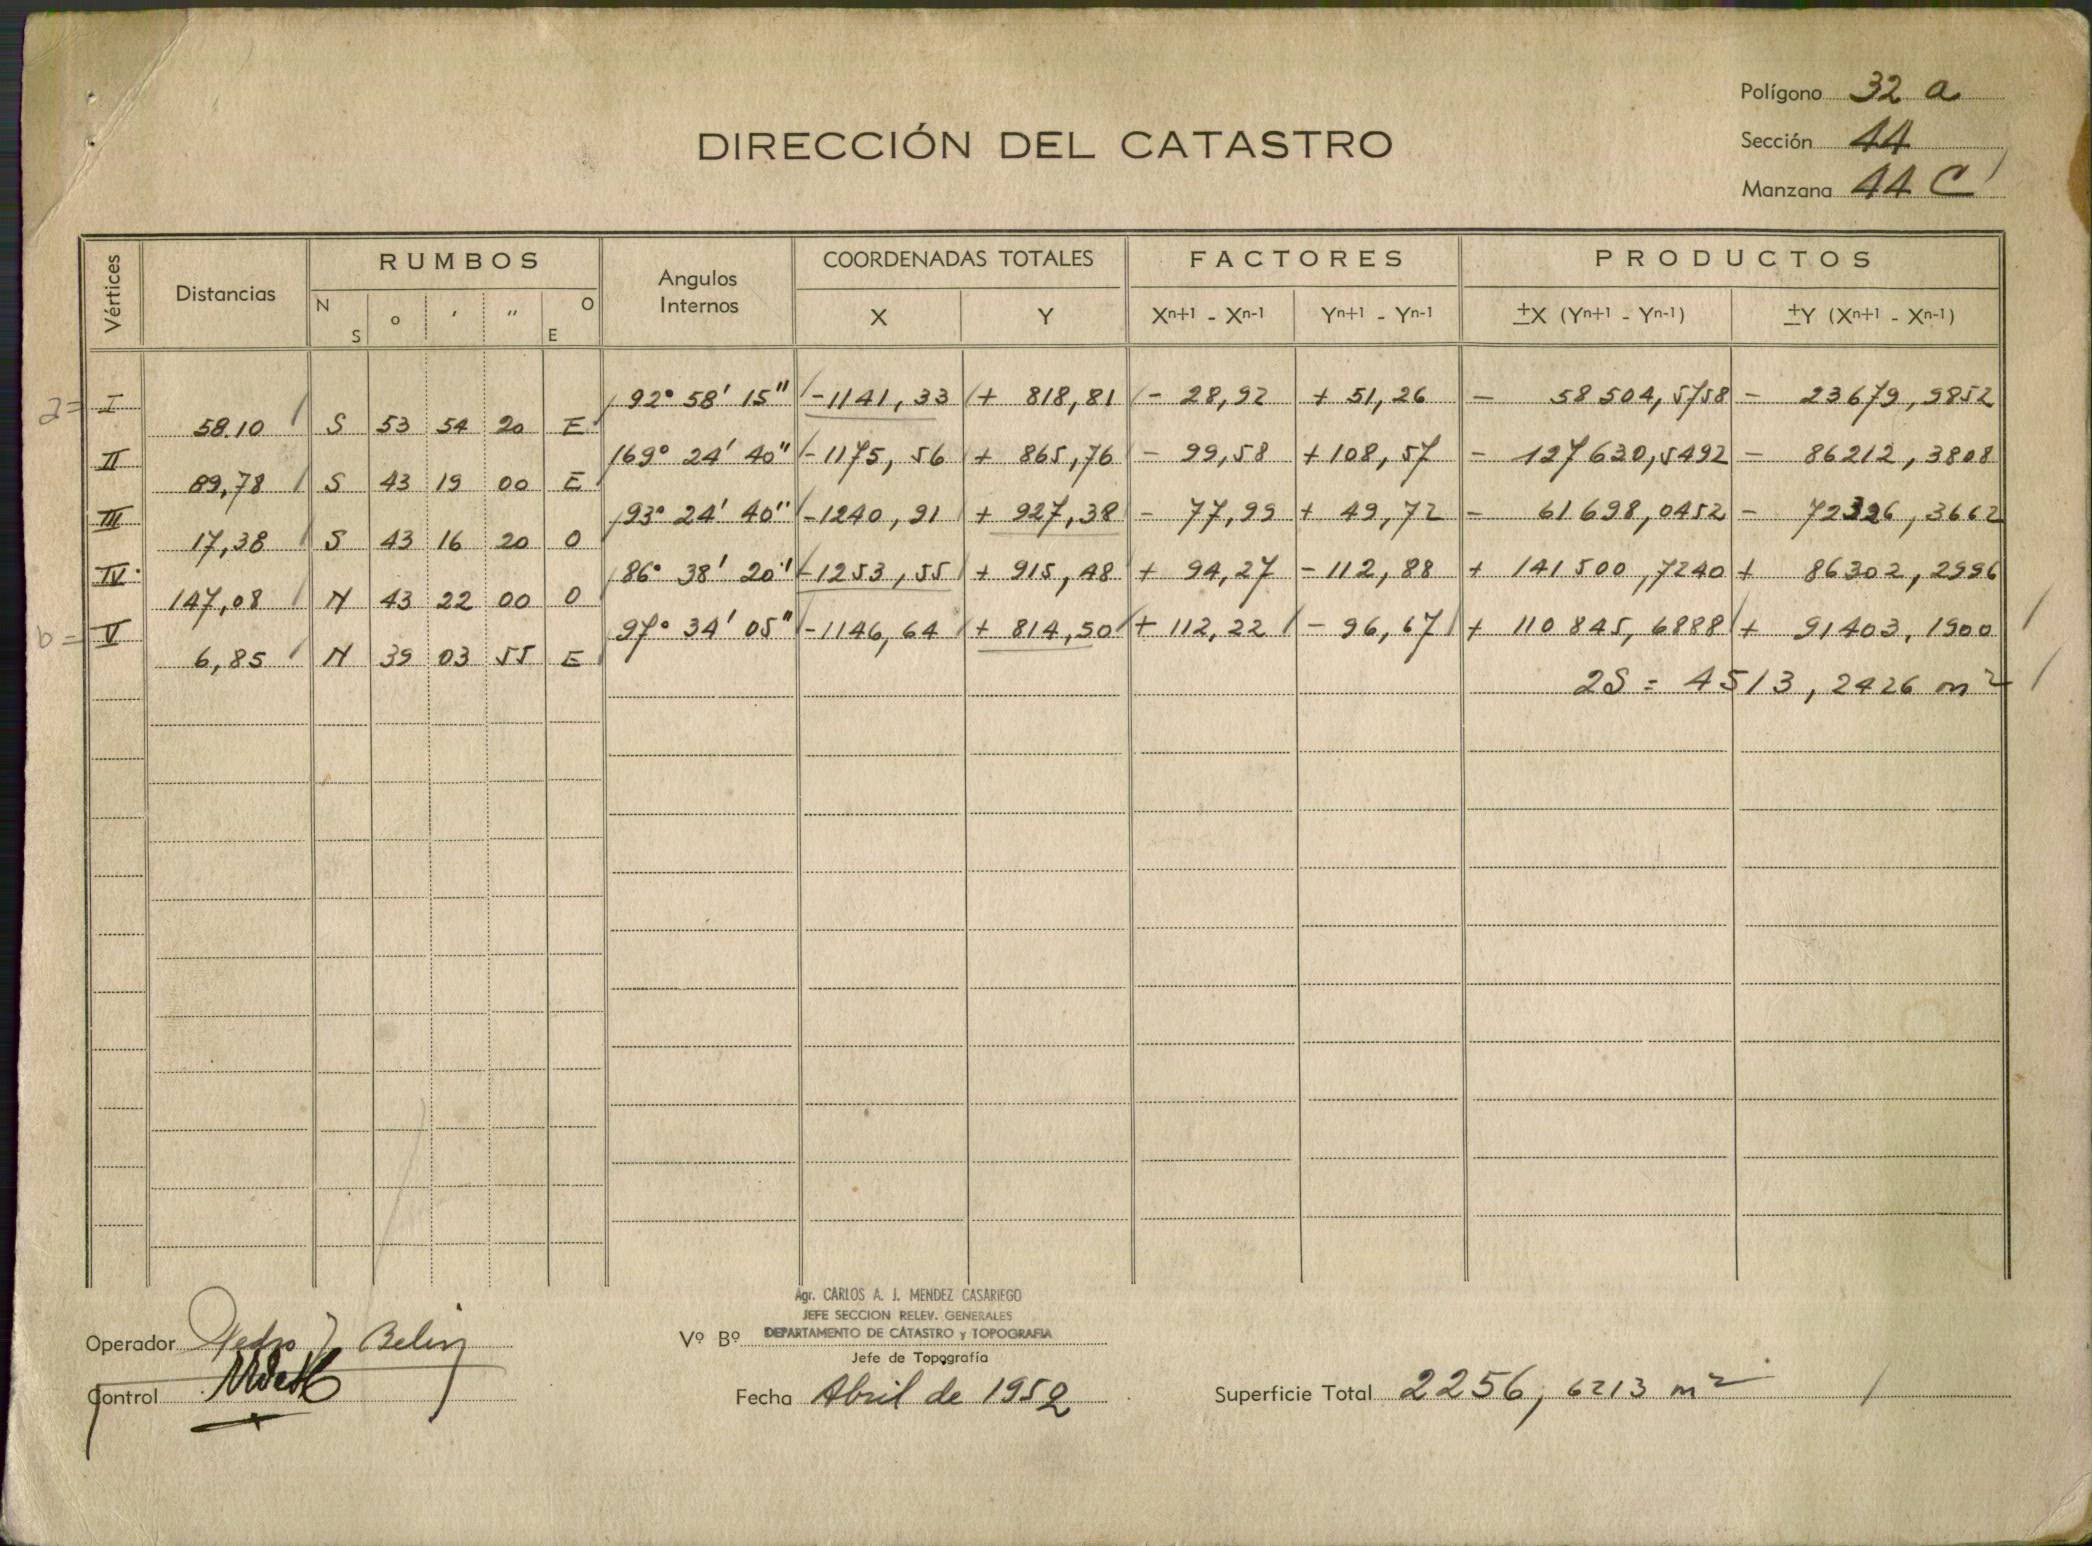 Polígono 32 a
DIRECCIÓN DEL CATASTRO
Sección 44
Manzana 44 C'
Vértices Distancias RUMBOS Angulos Internos COORDENADAS TOTALES FACTORES PRODUCTOS
N S o ' " O E X Y Xn+1 - Xn-1 Yn+1 - Yn-1 ±X (Yn+1 - Yn-1) ±Y (Xn+1 - Xn-1)
a= I 92° 58' 15" -1141,33 + 818,81 - 28,92 + 51,26 - 58504,5758 - 23679,9852
58.10 S 53 54 20 E
II 169° 24' 40" -1175,56 + 865,76 - 99,58 +108,57 - 127630,5492 - 86212,3808
89,78 S 43 19 00 E
III 93° 24' 40" -1240,91 + 927,38 - 77,99 + 49,72 - 61698,0452 - 72326,3662
17,38 S 43 16 20 O
IV 86° 38' 20" -1253,55 + 915,48 + 94,27 -112,88 + 141500,7240 + 86302,2996
147,08 N 43 22 00 O
b= V 97° 34' 05" -1146,64 + 814,50 + 112,22 - 96,67 + 110845,6888 + 91403,1900
6,85 N 39 03 55 E
2S = 4513,2426 m2
Agr. CARLOS A. J. MENDEZ CASARIEGO
JEFE SECCION RELEV. GENERALES
Operador Pedro J Belin Vº Bº DEPARTAMENTO DE CATASTRO y TOPOGRAFIA
Jefe de Topografía
Control Fecha Abril de 1952 Superficie Total 2256,6213 m2